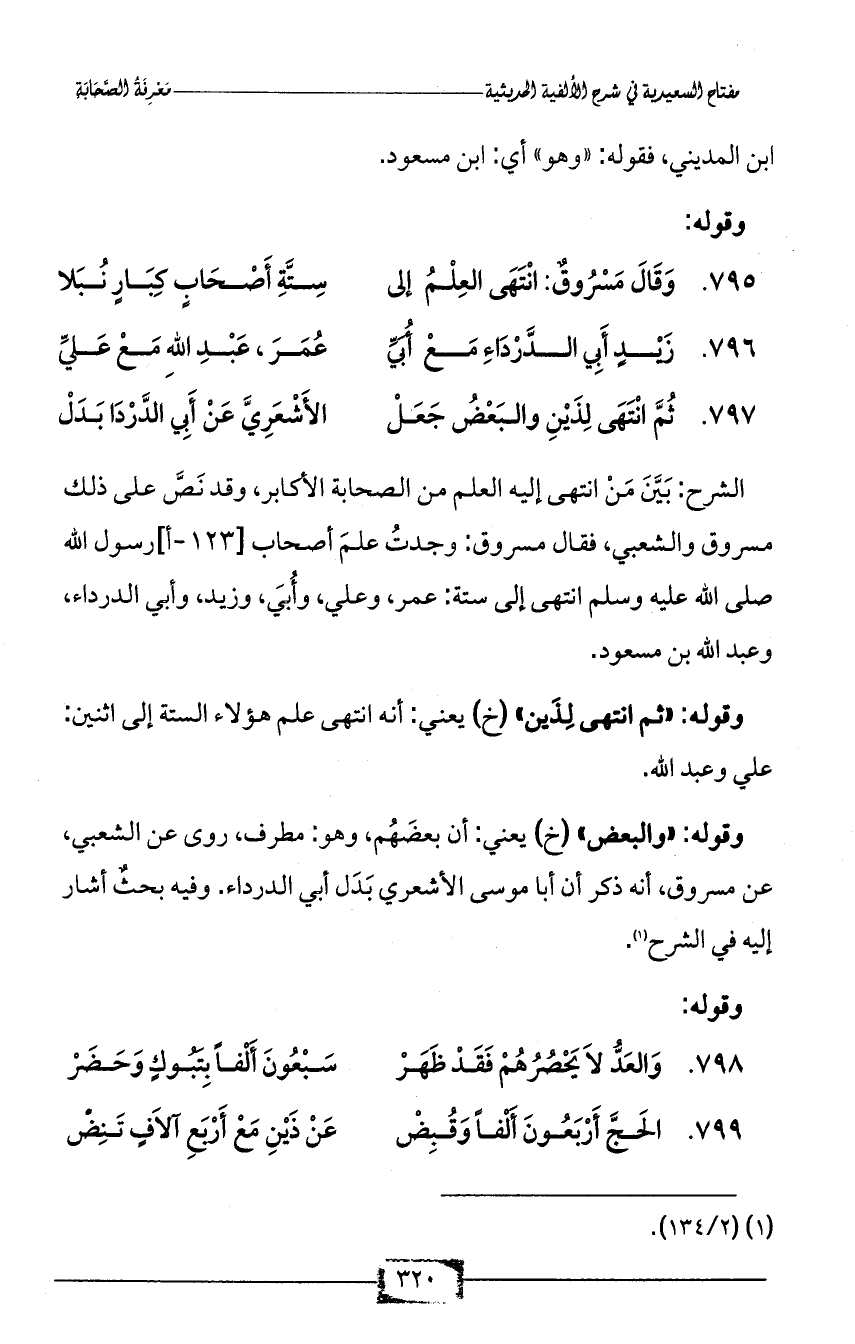 مفتاح السعيدية في شرح الألفية الحديثية ——— مَعْرِفَةُ الصَّحَابَةِ
ابن المديني، فقوله: «وهو» أي: ابن مسعود.
وقوله:
٧٩٥. وَقَالَ مَسْرُوقٌ: انْتَهَى العِلْمُ إلى سِتَّةِ أَصْحَابٍ كِبَارٍ نُبَلا
٧٩٦. زَيْدٍ أَبِي الدَّرْدَاءِ مَعْ أُبَيِّ عُمَرَ، عَبْدِ اللهِ مَعْ عَلِيِّ
٧٩٧. ثُمَّ انْتَهَى لِذَيْنِ والبَعْضُ جَعَلْ الأَشْعَرِيَّ عَنْ أَبِي الدَّرْدَا بَدَلْ
الشرح: بَيَّنَ مَنْ انتهى إليه العلم من الصحابة الأكابر، وقد نَصَّ على ذلك
مسروق والشعبي، فقال مسروق: وجدتُ علمَ أصحاب [١٢٣-أ]رسول الله
صلى الله عليه وسلم انتهى إلى ستة: عمر، وعلي، وأُبيَ، وزيد، وأبي الدرداء،
وعبد الله بن مسعود.
وقوله: «ثم انتهى لِذَين» (خ) يعني: أنه انتهى علم هؤلاء الستة إلى اثنين:
علي وعبد الله.
وقوله: «والبعض» (خ) يعني: أن بعضَهُم، وهو: مطرف، روى عن الشعبي،
عن مسروق، أنه ذكر أن أبا موسى الأشعري بَدَل أبي الدرداء. وفيه بحثٌ أشار
إليه في الشرح(١).
وقوله:
٧٩٨. وَالعَدُّ لاَ يَحْصُرُهُمْ فَقَدْ ظَهَرْ سَبْعُونَ أَلْفاً بِتَبُوكٍ وَحَضَرْ
٧٩٩. الحَجَّ أَرْبَعُونَ أَلْفاً وَقُبِضْ عَنْ ذَيْنِ مَعْ أَرْبَعِ آلاَفٍ تَنِضّْ
(١) (١٣٤/٢).
٣٢٠